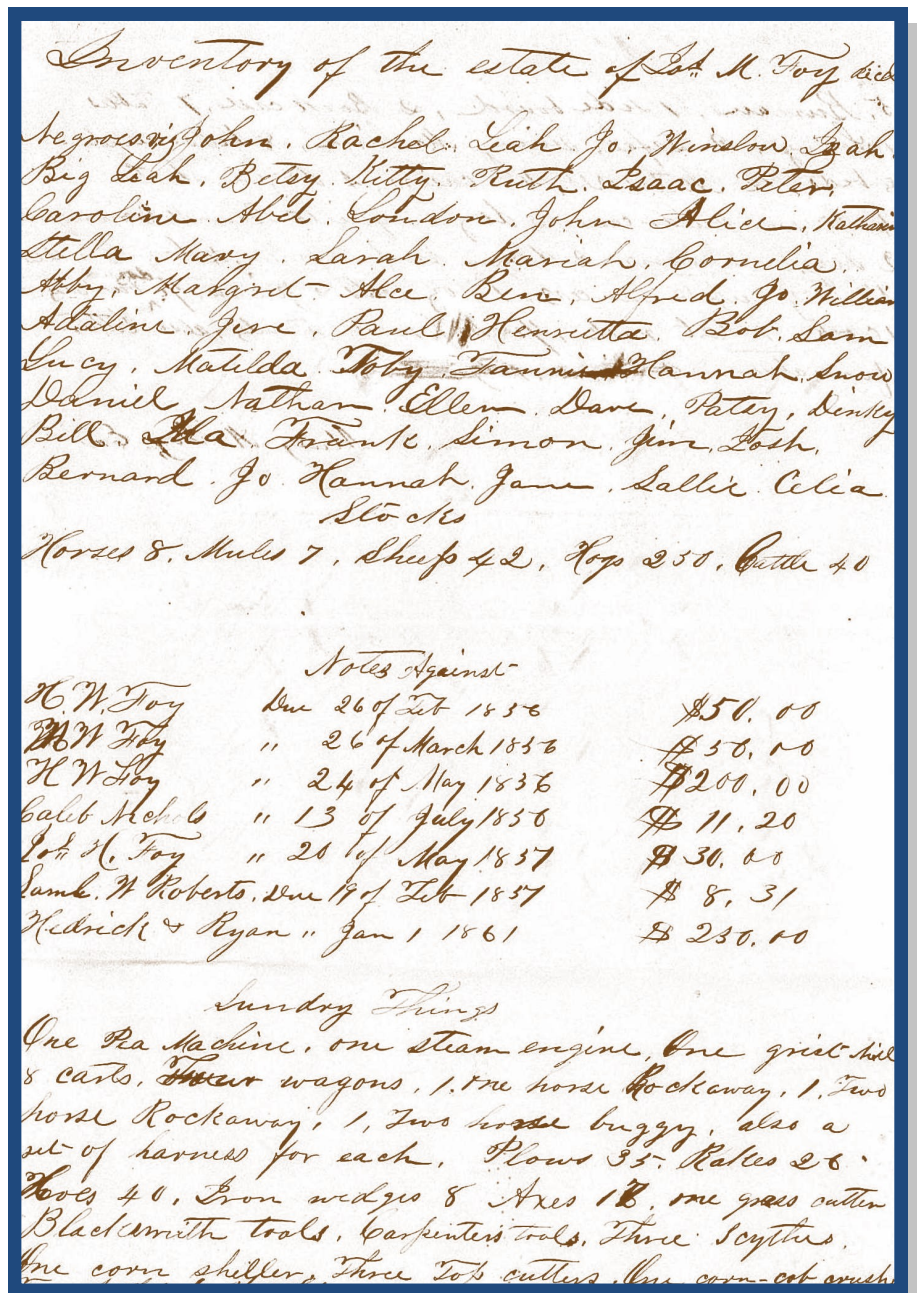 Inventory of the estate of Jos. M. Foy decd
Negroes viz John. Rachel. Leah Jo. Winslow Leah.
Big Leah. Betsy. Kitty. Ruth. Isaac. Peter.
Caroline. Abel. London. John Alice. Katharin
Stella Mary. Sarah. Mariah. Cornelia.
Abby. Margret Alce Ben. Alfred Jo. William
Adaline Jere. Paul. Henrietta. Bob. Sam
Lucy. Matilda. Toby. Fannie Hannah. Snow
Daniel Nathan. Ellen. Dave. Patsy. Dinky
Bill Ila Frank. Simon. Jim. Josh.
Bernard. Jo. Hannah. Jane. Sallie. Celia
Stocks
Horses 8. Mules 7. Sheep 42. Hogs 250. Cattle 40
Notes Against
H. W. Foy Due 26 of Feb 1856 $50.00
W Foy " 26 of March 1856 $50.00
H W Foy " 24 of May 1856 $200.00
Caleb Nichols " 13 of July 1856 $11.20
Jos. H. Foy " 20 of May 1857 $30.00
Saml. W Roberts. Due 19 of Feb 1857 $8.31
Hedrick & Ryan " Jan 1 1861 $250.00
Sundry Things
One Pea Machine. one steam engine. One grist Mill
8 carts. Four wagons. 1. one horse Rockaway. 1. Two
horse Rockaway. 1. Two horse buggy. also a
set of harness for each. Plows 35. Rakes 26.
Hoes 40. Iron wedges 8 Axes one grass cutter
Blacksmith tools. Carpenters tools. Three Scythes.
One corn sheller. Three Top cutters. One corn-cob crush